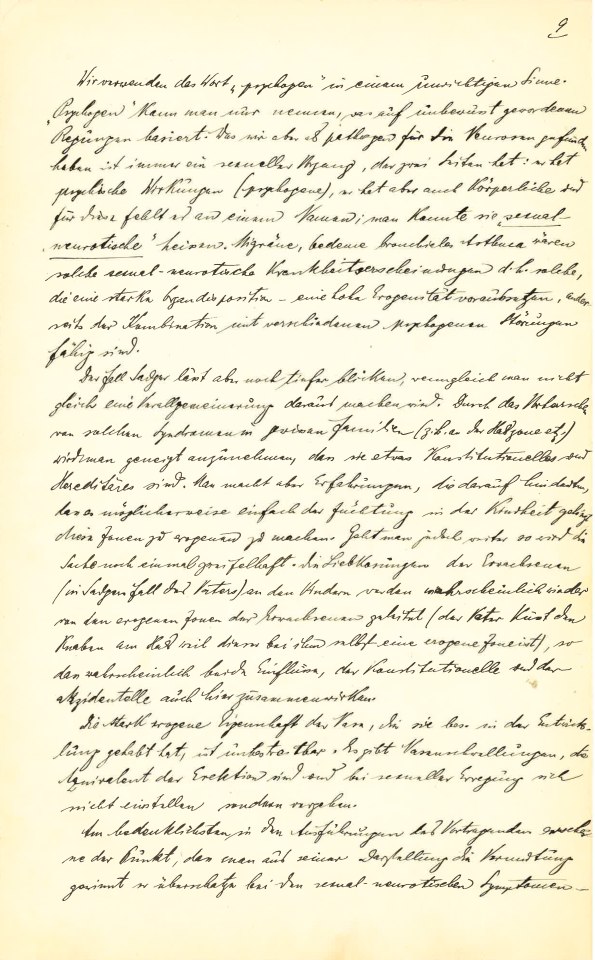 9
Wir verwenden das Wort „psychogen" in einem unrichtigen Sinne.
„Psychogen" kann man nur nennen, was auf unbewusst gewordenen
Regungen basiert. Was wir aber als pathogen für die Neurosen gefunden
haben ist immer ein sexueller Vorgang, der zwei Seiten hat: er hat
psychische Wirkungen (psychogene), er hat aber auch körperliche und
für diese fehlt es an einem Namen; man könnte sie „sexual-
neurotische" heissen. Migräne, Oedeme bronchiales Asthma wären
solche sexual-neurotische Krankheitserscheinungen d.h. solche,
die eine starke Organdisposition – eine hohe Erogenität voraussetzen, ander
seits der Kombination mit verschiedenen psychogenen Störungen
fähig sind.
Der Fall Sadger lässt aber noch tiefer blicken, wenngleich man nicht
gleich eine Verallgemeinerung daraus machen wird. Durch das Vorherrschen
von solchen Syndromen in gewissen Familien (z.B. an der Halszone etz.)
wird man geneigt anzunehmen, dass sie etwas Konstitutionelles und
Hereditäres sind. Man macht aber Erfahrungen, die darauf hindeuten,
dass es möglicherweise einfach der Züchtung in der Kindheit gelingt
diese Zonen zu erogenen zu machen. Geht man jedoch weiter so wird die
Sache noch einmal zweifelhaft. Die Liebkosungen der Erwachsenen
(in Sadgers Fall des Vaters) an den Kindern werden wahrscheinlich wieder
von den erogenen Zonen der Erwachsenen geleitet (der Vater küsst den
Knaben am Hals weil dieser bei ihm selbst eine erogene Zone ist), so
dass wahrscheinlich beide Einflüsse, der Konstitutionelle und der
akzidentelle auch hier zusammenwirken.
Die stark erogene Eigenschaft der Nase, die sie bes. in der Entwick-
lung gehabt hat, ist unbestreitbar. Es gibt Nasenschwellungen, die
Aequivalent der Erektion sind und bei sexueller Erregung sich
nicht einstellen sondern vergehen.
Am bedenklichsten in den Ausführungen des Vortragenden erschei-
ne der Punkt, dass man aus seiner Darstellung die Vermutung
gewinnt er überschätze bei den sexual-neurotischen Symptomen –